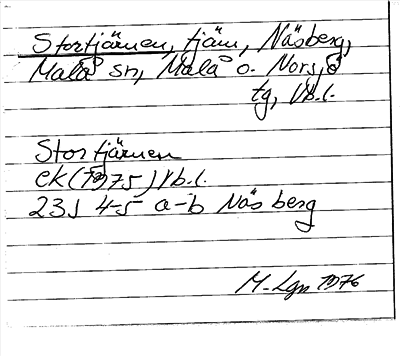 Stortjärnen, tjärn, Näsberg,
Malå sn, Malå o. Norsjö
tg, Vb.l.
Stortjärnen
ek (1975) Vb.l.
23J 4-5 a-b Näsberg
M. Lgn 1976